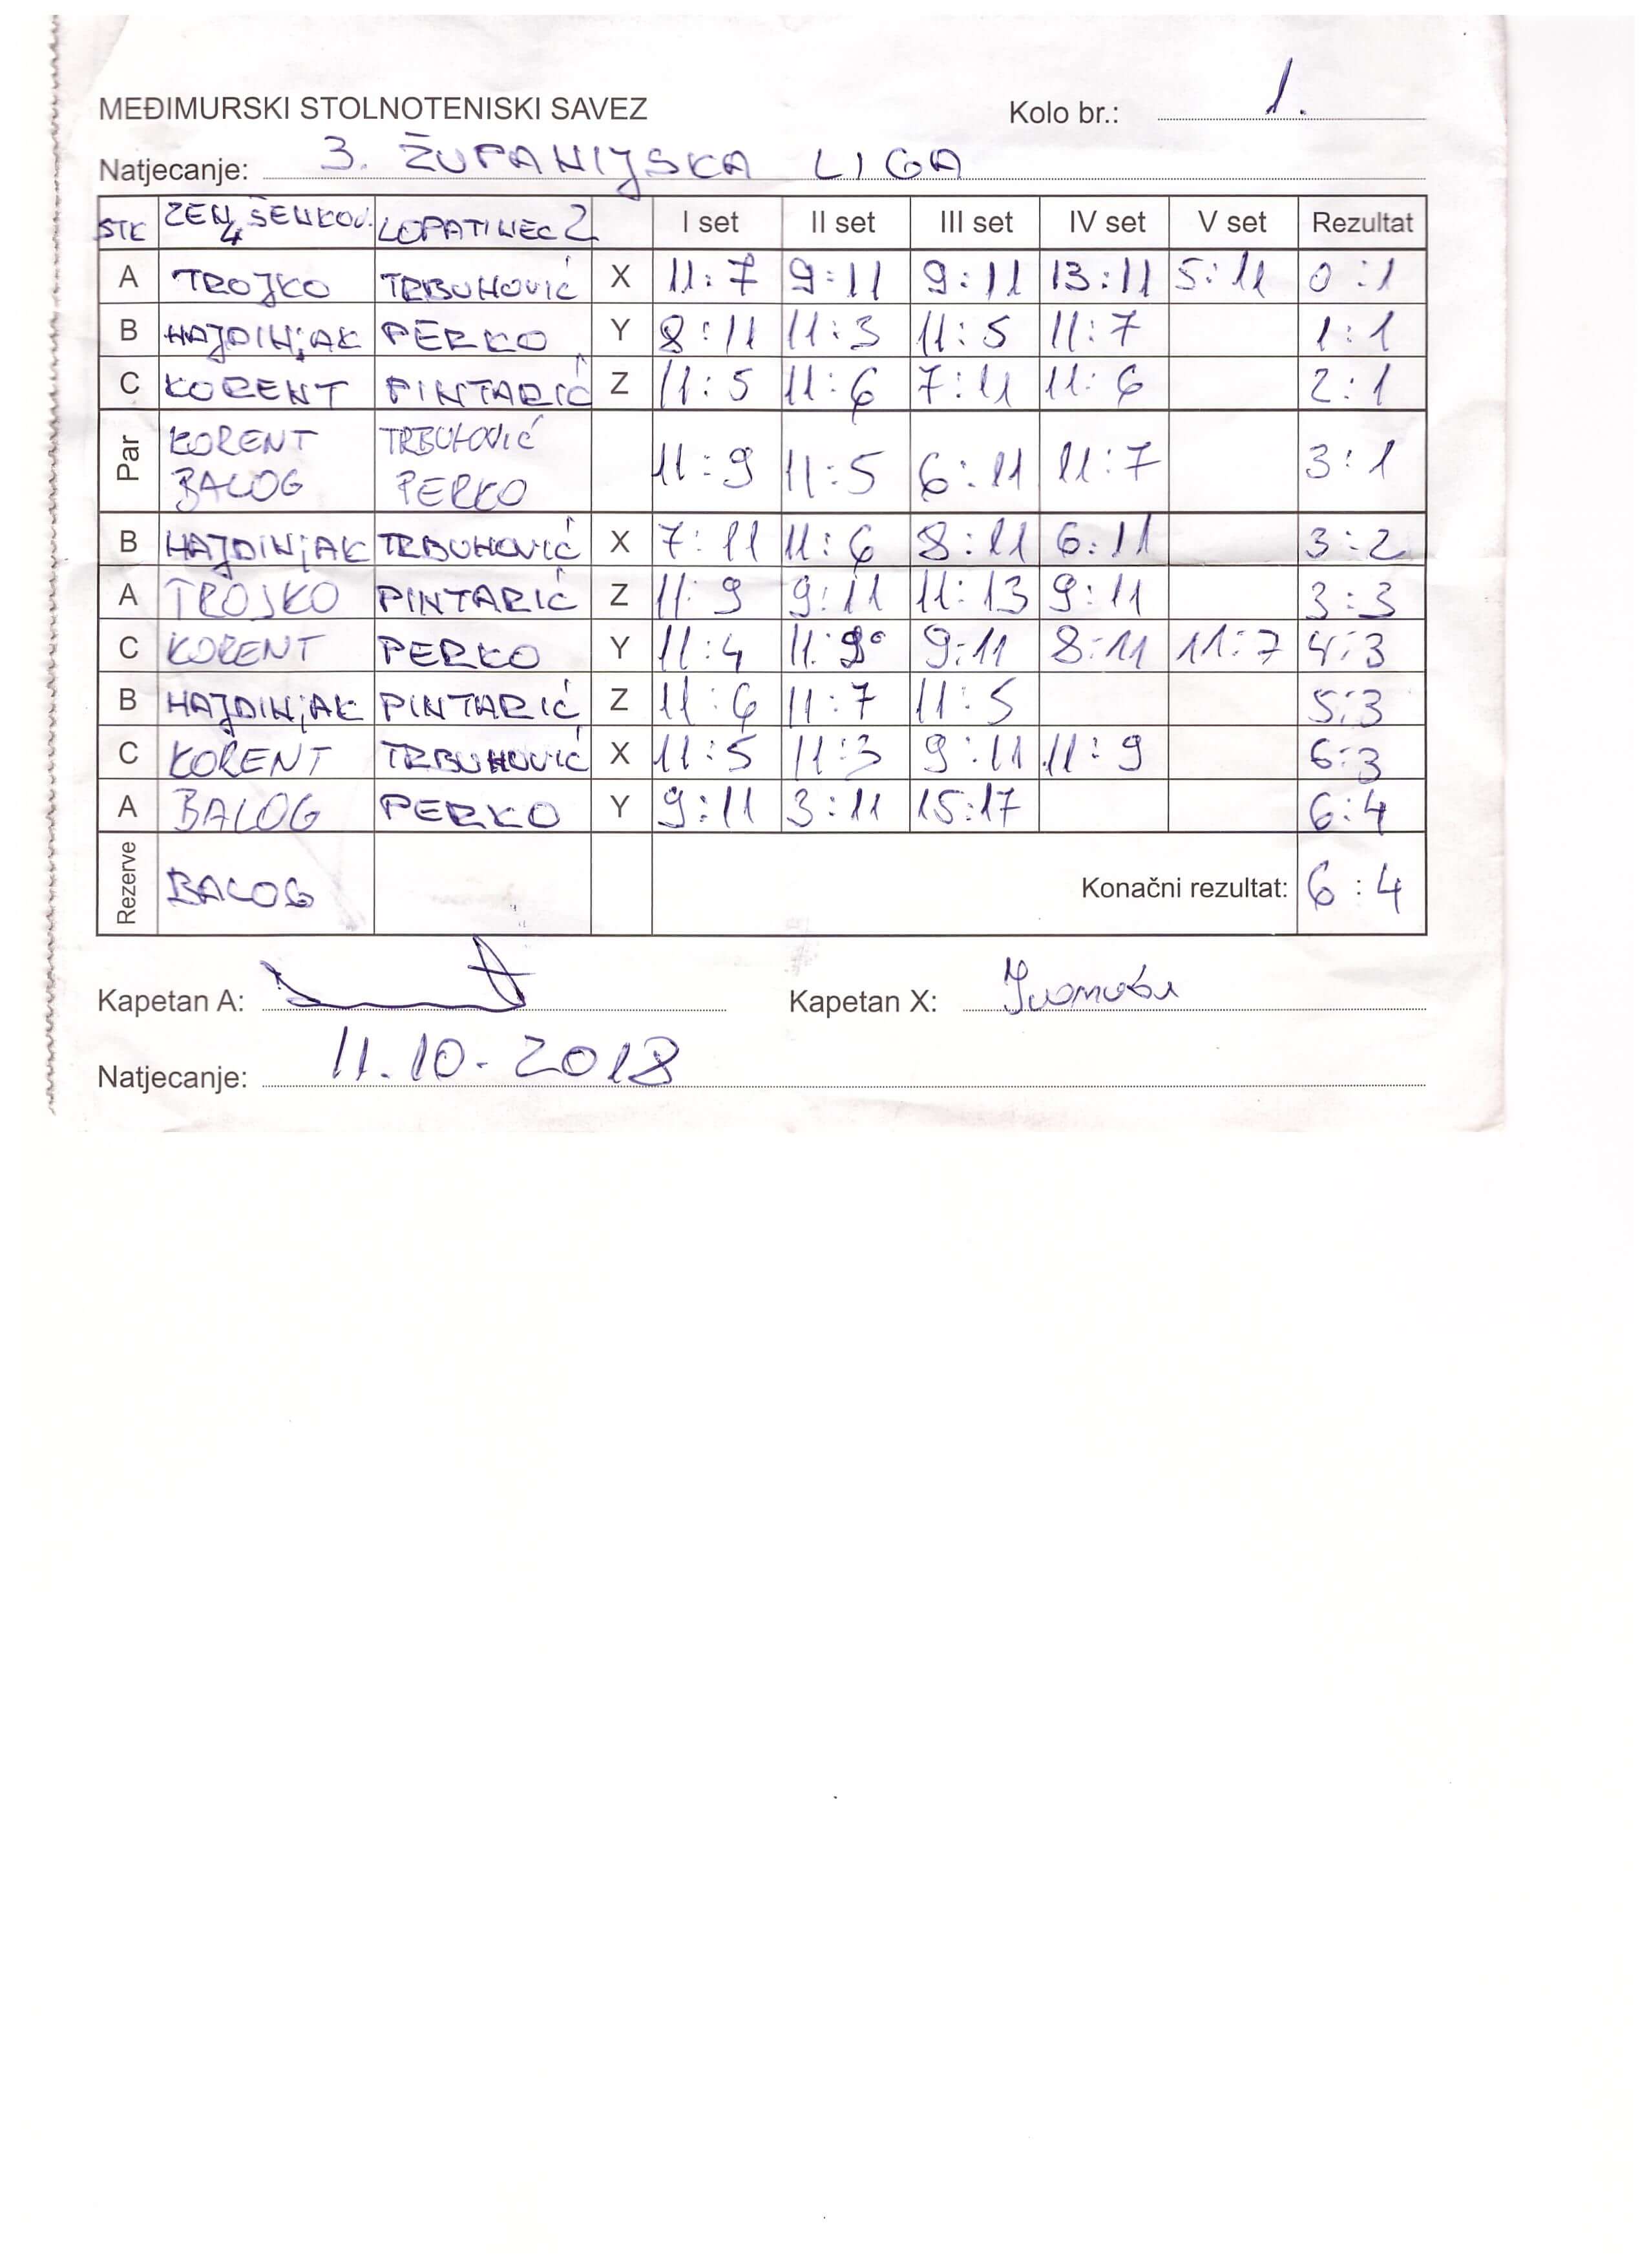 MEĐIMURSKI STOLNOTENISKI SAVEZ Kolo br.: 1.
Natjecanje: 3. ŽUPANIJSKA LIGA
STK ZEN ŠENKOV. 4 LOPATINEC 2 I set II set III set IV set V set Rezultat
A TROJKO TRBUHOVIĆ X 11:7 9:11 9:11 13:11 5:11 0:1
B HAJDINJAK PERKO Y 8:11 11:3 11:5 11:7 1:1
C KORENT PINTARIĆ Z 11:5 11:6 7:11 11:6 2:1
Par KORENT BALOG TRBUHOVIĆ PERKO 11:9 11:5 6:11 11:7 3:1
B HAJDINJAK TRBUHOVIĆ X 7:11 11:6 8:11 6:11 3:2
A TROJKO PINTARIĆ Z 11:9 9:11 11:13 9:11 3:3
C KORENT PERKO Y 11:4 11:9 9:11 8:11 11:7 4:3
B HAJDINJAK PINTARIĆ Z 11:6 11:7 11:5 5:3
C KORENT TRBUHOVIĆ X 11:5 11:3 9:11 11:9 6:3
A BALOG PERKO Y 9:11 3:11 15:17 6:4
Rezerve BALOG Konačni rezultat: 6:4
Kapetan A: Kapetan X:
Natjecanje: 11.10.2018